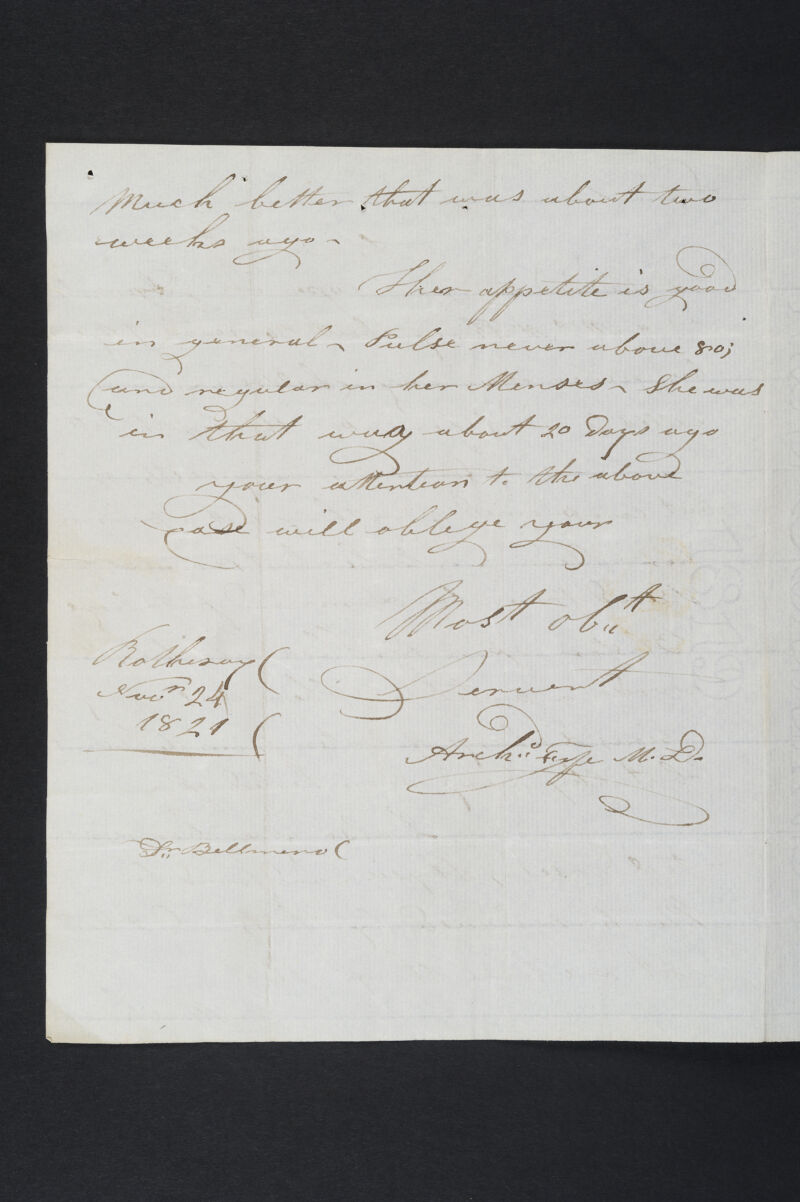 Much better that was about two
weeks ago -
Sher appetite is good
in general - Pulse never above 80;
and regular in her Menses - She was
in that way about 20 Days ago
your attention to the above
case will oblege your
Most obtt
Servent
Rothesay
Novr 24
1821
Archd M. D.
Dr